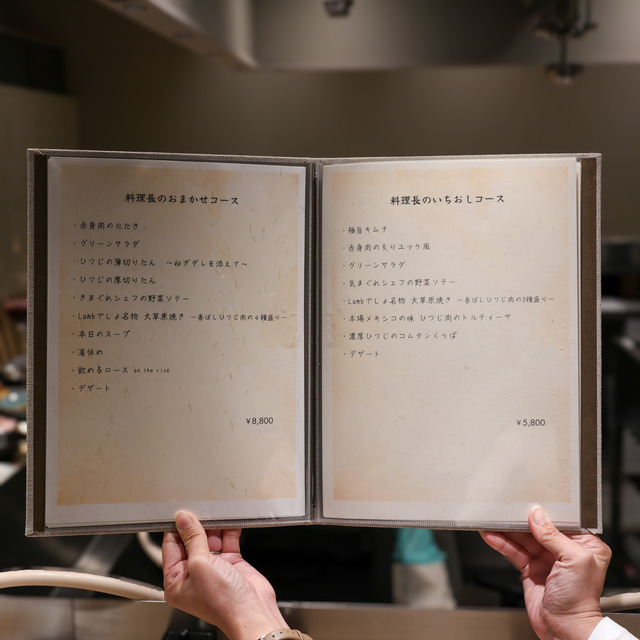 料理長のおまかせコース
・赤身肉のたたき
・グリーンサラダ
・ひつじの薄切りたん ～ねぎダレを添えて～
・ひつじの厚切りたん
・きまぐれシェフの野菜ソテー
・Lambでしょ名物 大草原焼き ～香ばしひつじ肉の4種盛り～
・本日のスープ
・箸休め
・飲めるロース on the rice
・デザート
¥8,800
料理長のいちおしコース
・極旨キムチ
・赤身肉の炙りユッケ風
・グリーンサラダ
・気まぐれシェフの野菜ソテー
・Lambでしょ名物 大草原焼き ～香ばしひつじ肉の3種盛り～
・本場メキシコの味 ひつじ肉のトルティーヤ
・濃厚ひつじのコムタンくっぱ
・デザート
¥5,800